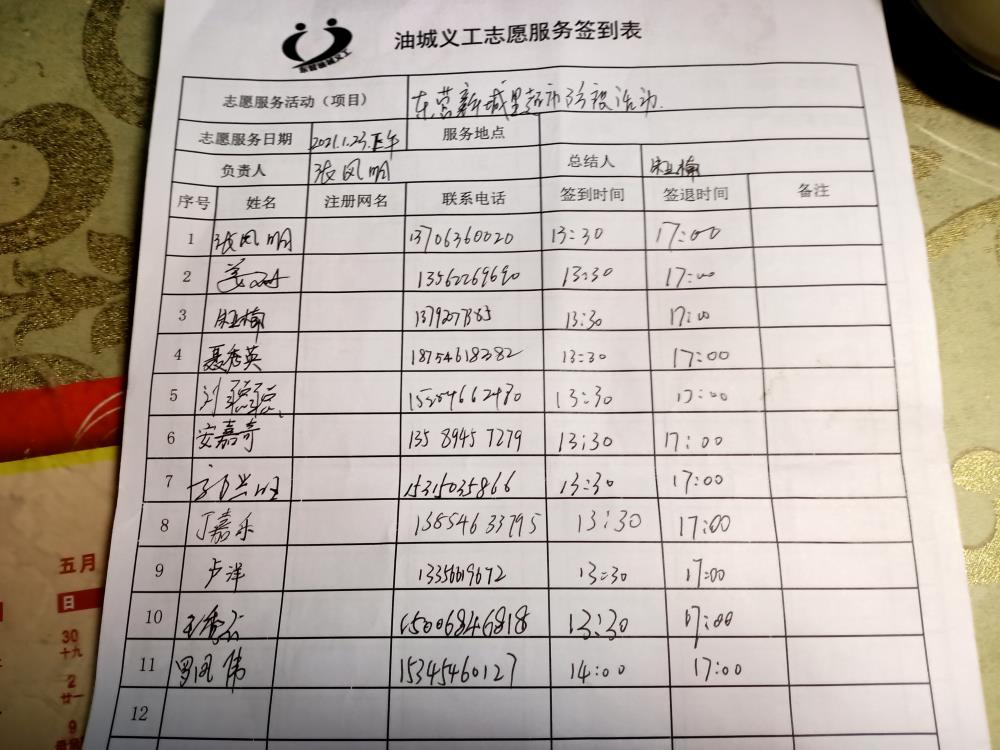 油城义工志愿服务签到表
东营油城义工
志愿服务活动（项目） 东营新城里超市防疫活动.
志愿服务日期 2021.1.23.下午 服务地点
负责人 张凤明 总结人
序号 姓名 注册网名 联系电话 签到时间 签退时间 备注
1 张凤明 13706360020 13:30 17:00
2 13562269690 13:30 17:00
3 13:30 17:00
4 聂秀英 18754618382 13:30 17:00
5 刘聪聪 13:30 17:00
6 安嘉奇 13589457279 13:30 17:00
7 15315035866 13:30 17:00
8 丁嘉乐 13854633795 13:30 17:00
9 卢洋 13356619672 13:30 17:00
10 15006846818 13:30 17:00
11 罗凤伟 15345460127 14:00 17:00
12
五月
日
30
十九
2
廿一
9